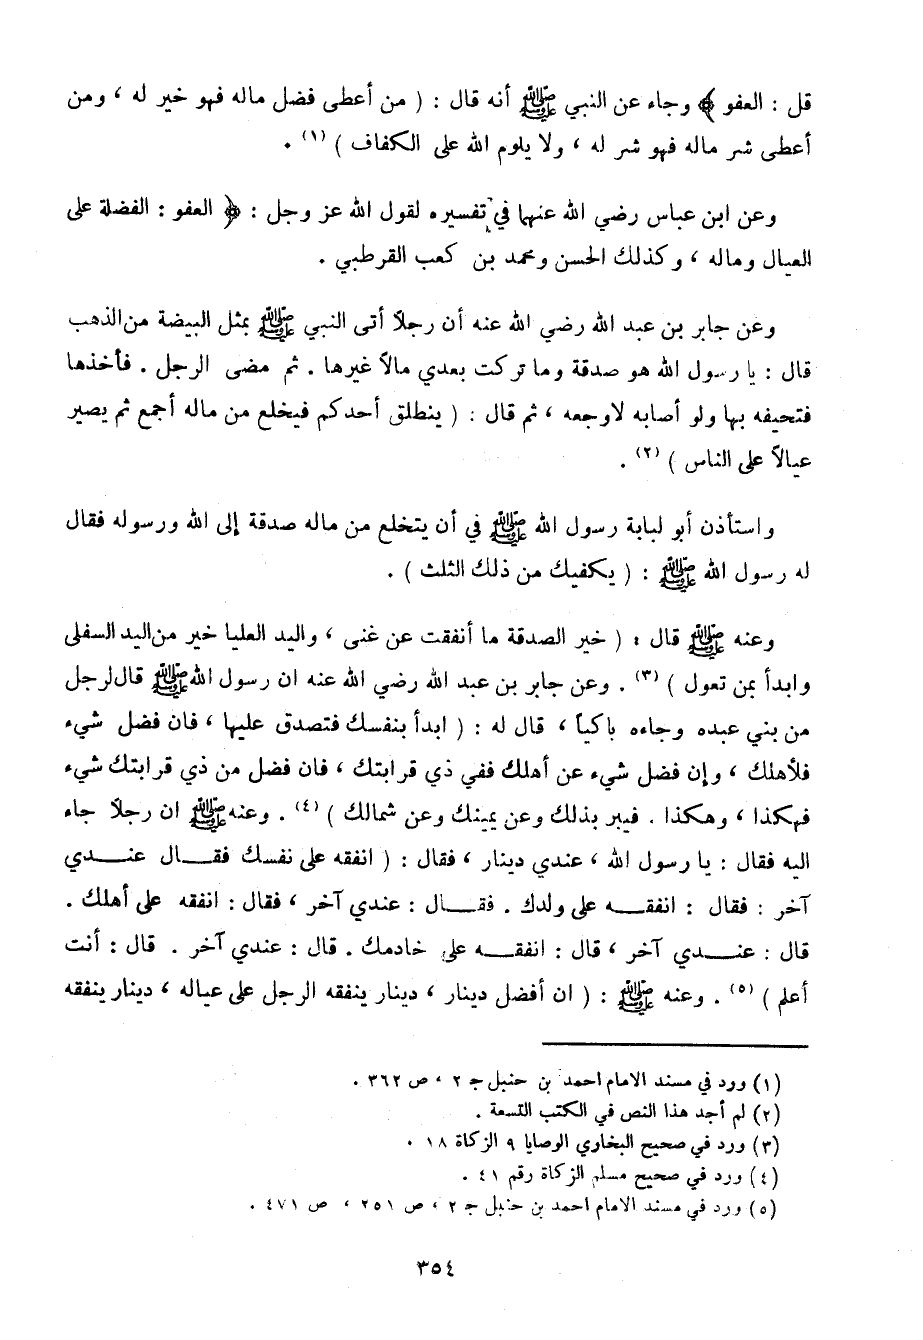 قل : العفو ﴾ وجاء عن النبي ﷺ أنه قال : ( من أعطى فضل ماله فهو خير له ، ومن
أعطى شر ماله فهو شر له ، ولا يلوم الله على الكفاف ) (١) .
وعن ابن عباس رضي الله عنهما في تفسيره لقول الله عز وجل : ﴿ العفو : الفضلة على
العيال وماله ، وكذلك الحسن ومحمد بن كعب القرطبي .
وعن جابر بن عبد الله رضي الله عنه أن رجلاً أتى النبي ﷺ بمثل البيضة من الذهب
قال : يا رسول الله هو صدقة وما تركت بعدي مالاً غيرها . ثم مضى الرجل . فأخذها
فتحيفه بها ولو أصابه لاوجعه ، ثم قال : ( ينطلق أحدكم فيخلع من ماله أجمع ثم يصير
عيالاً على الناس ) (٢) .
واستأذن أبو لبابة رسول الله ﷺ في أن يتخلع من ماله صدقة إلى الله ورسوله فقال
له رسول الله ﷺ : ( يكفيك من ذلك الثلث ) .
وعنه ﷺ قال : ( خير الصدقة ما أنفقت عن غنى ، واليد العليا خير من اليد السفلى
وابدأ بمن تعول ) (٣) . وعن جابر بن عبد الله رضي الله عنه ان رسول الله ﷺ قال لرجل
من بني عبده وجاءه باكياً ، قال له : ( ابدأ بنفسك فتصدق عليها ، فان فضل شيء
فلأهلك ، وإن فضل شيء عن أهلك ففي ذي قرابتك ، فان فضل من ذي قرابتك شيء
فهكذا ، وهكذا . فيبر بذلك وعن يمينك وعن شمالك ) (٤) . وعنه ﷺ ان رجلاً جاء
اليه فقال : يا رسول الله ، عندي دينار ، فقال : ( انفقه على نفسك فقال عندي
آخر : فقال : انفقه على ولدك . فقال : عندي آخر ، فقال : انفقه على أهلك .
قال : عندي آخر ، قال : انفقه على خادمك . قال : عندي آخر . قال : أنت
أعلم ) (٥) . وعنه ﷺ : ( ان أفضل دينار ، دينار ينفقه الرجل على عياله ، دينار ينفقه
(١) ورد في مسند الامام احمد بن حنبل جـ ٢ ، ص ٣٦٢ .
(٢) لم أجد هذا النص في الكتب التسعة .
(٣) ورد في صحيح البخاري الوصايا ٩ الزكاة ١٨ .
(٤) ورد في صحيح مسلم الزكاة رقم ٤١ .
(٥) ورد في مسند الامام احمد بن حنبل جـ ٢ ، ص ٢٥١ ، ص ٤٧١ .
٣٥٤